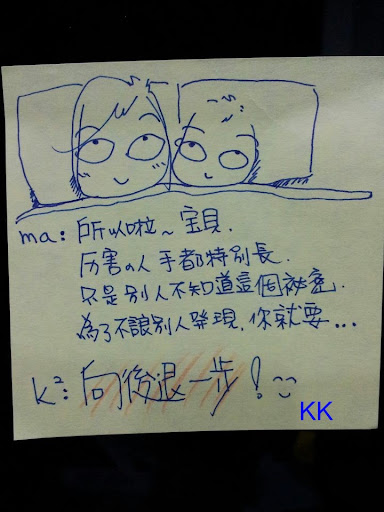 ma: 所以啦~ 宝貝.
厉害の人 手都特別長.
只是別人不知道這個祕密.
為了不讓別人發現, 你就要...
k²: 向後退一步!
KK